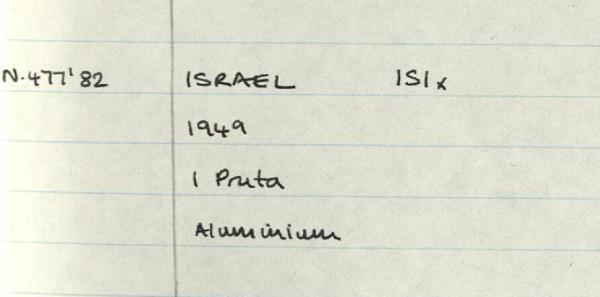 N.477'82 ISRAEL ISIx
1949
1 Pruta
Aluminium